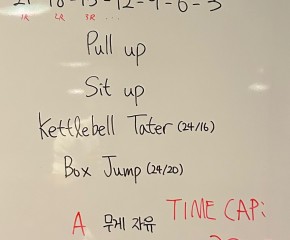 21-18-15-12-9-6-3
1R 2R 3R ...
Pull up
Sit up
Kettlebell Tater (24/16)
Box Jump (24/20)
A 무게 자유 TIME CAP: